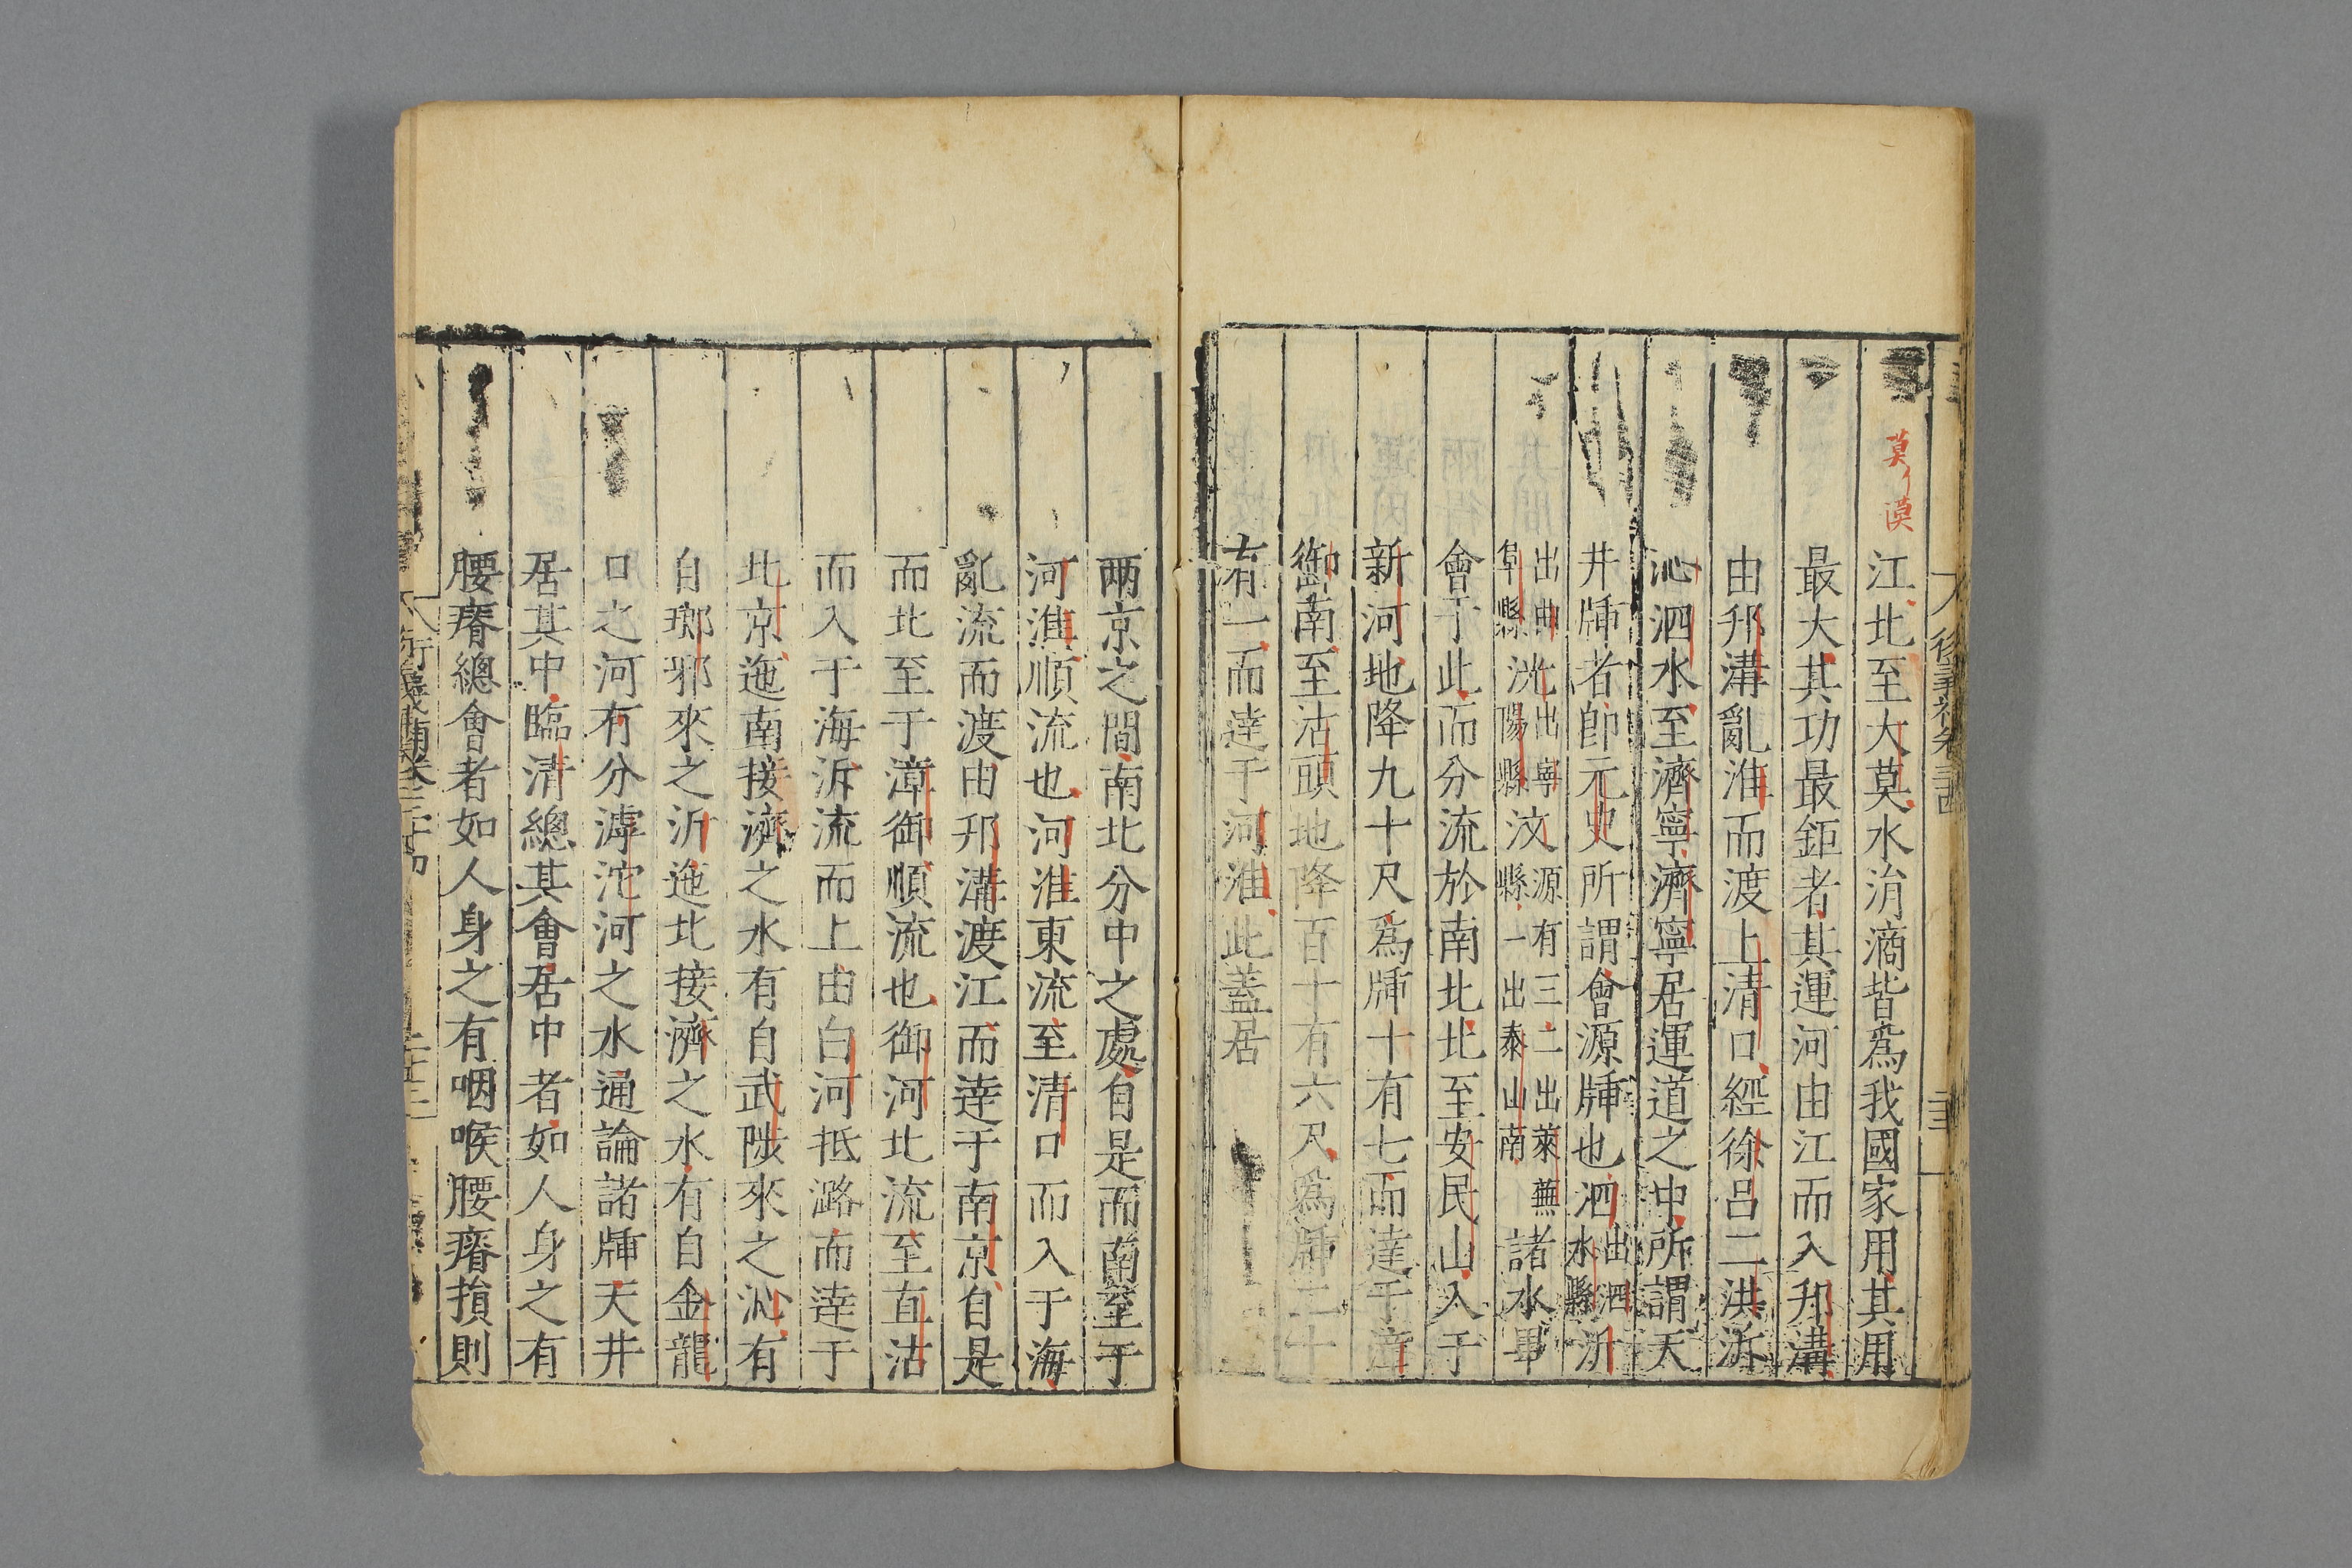 莫〻漠
江北至大莫水涓滴皆爲我國家用其用
最大其功最鉅者其運河由江而入邗溝
由邗溝亂淮而渡上清口經徐呂二洪泝
沁泗水至濟寧濟寧居運道之中所謂天
井牐者卽元史所謂會源牐也泗出泗水縣沂
出曲阜縣洸出寧陽縣汶源有三二出萊蕪縣一出泰山南諸水畢
會于此而分流於南北北至安民山入于
新河地降九十尺爲牐十有七而達于漳
御南至沽頭地降百十有六尺爲牐二十
有一而達于河淮此蓋居
兩京之間南北分中之處自是而南至于
河淮順流也河淮東流至清口而入于海
亂流而渡由邗溝渡江而達于南京自是
而北至于漳御順流也御河北流至直沽
而入于海泝流而上由白河抵潞而達于
北京迤南接濟之水有自武陟來之沁有
自瑯邪來之沂迤北接濟之水有自金龍
口之河有分滹沱河之水通論諸牐天井
居其中臨清總其會居中者如人身之有
腰膂總會者如人身之有咽喉腰膂損則
衍義補卷三十四